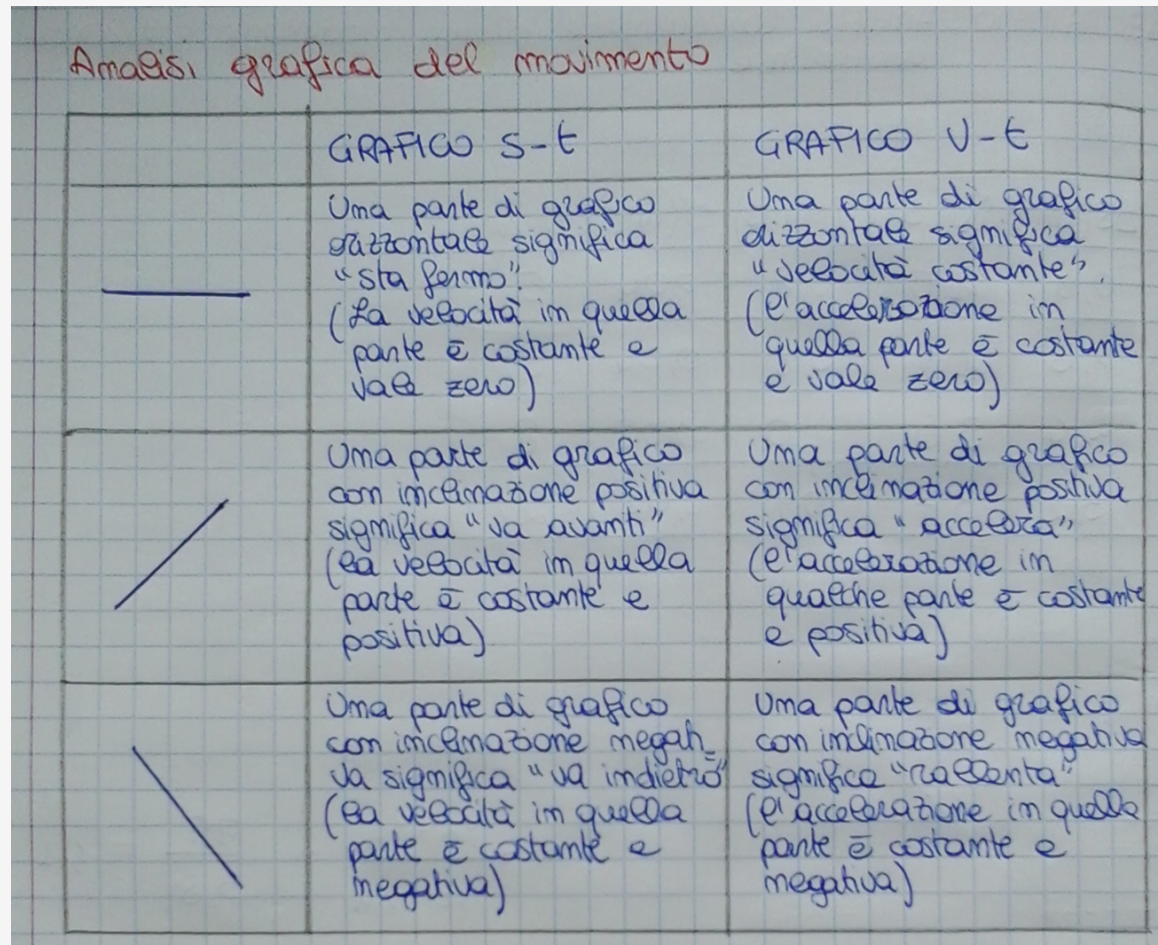 Analisi grafica del movimento
GRAFICO S-t
GRAFICO V-t
Una parte di grafico
orizzontale significa
"sta fermo".
(La velocità in quella
parte è costante e
vale zero)
Una parte di grafico
orizzontale significa
"velocità costante".
(l'accelerazione in
quella parte è costante
e vale zero)
Una parte di grafico
con inclinazione positiva
significa "va avanti"
(la velocità in quella
parte è costante e
positiva)
Una parte di grafico
con inclinazione positiva
significa "accelera"
(l'accelerazione in
qualche parte è costante
e positiva)
Una parte di grafico
con inclinazione negati_
va significa "va indietro"
(la velocità in quella
parte è costante e
negativa)
Una parte di grafico
con inclinazione negativa
significa "rallenta"
(l'accelerazione in quella
parte è costante e
negativa)